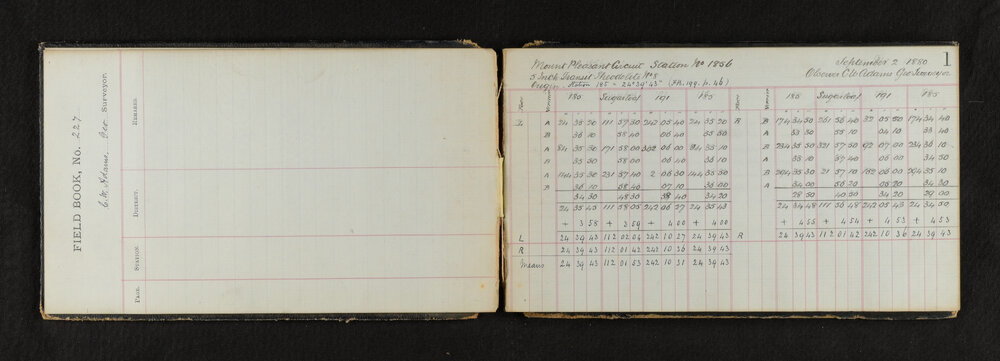 FIELD BOOK, No. 227.
C. W. Adams, Geo. Surveyor.
Page. Station. District. Remarks.
1
Mount Pleasant Circuit Station No 186
September 2 1880
5 Inch Transit Theodolite No 8
Observer C W Adams Geo Surveyor
Origin Station 185 = 24° 39' 43" (F.B. 199. p. 46)
Face Vernier 185 Sugarloaf 191 185 Face Vernier 185 Sugarloaf 191 185
L A 24 35 20 111 57 30 242 05 40 24 35 20 R B 174 34 40 261 56 40 32 05 50 174 34 40
B 36 10 58 40 06 40 35 50 A 33 30 55 10 04 10 33 40
A 84 35 30 171 58 00 302 06 00 84 35 10 B 234 35 50 321 57 50 92 07 00 234 36 10
B 35 50 58 00 06 40 36 10 A 35 10 57 40 06 00 34 50
A 144 35 30 231 57 40 2 06 30 144 35 50 B 294 35 30 21 57 10 152 06 00 294 35 10
B 36 10 58 40 07 10 36 00 A 34 00 56 20 05 20 34 30
34 30 48 30 38 40 34 20 28 50 40 50 34 20 29 00
24 35 45 111 58 05 242 06 27 24 35 43 24 34 48 111 56 48 242 05 43 24 34 50
+ 3 58 + 3 59 + 4 00 + 4 00 + 4 55 + 4 54 + 4 53 + 4 53
L 24 39 43 112 02 04 242 10 27 24 39 43 R 24 39 43 112 01 42 242 10 36 24 39 43
R 24 39 43 112 01 42 242 10 36 24 39 43
Means 24 39 43 112 01 53 242 10 31 24 39 43